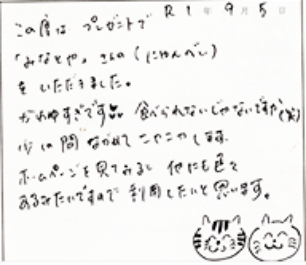 R1年9月5日
この度は プレゼントで
「みなとや」さんの（にゃんべい）
をいただきました。
かわゆすぎです 食べられないじゃないですか(笑)
少しの間 ながめてニヤニヤします。
ホームページを見てみると 他にも色々
あるみたいですので 利用したいと思います。